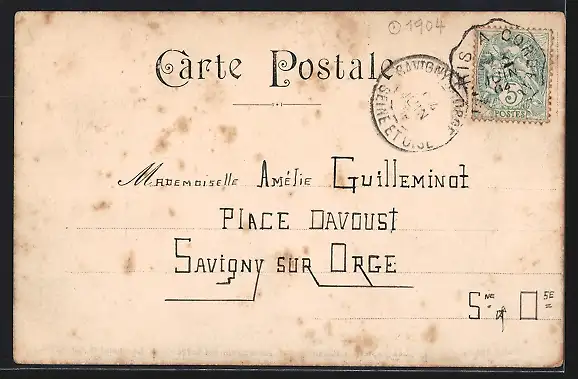 ⊙1904
Carte Postale
SAVIGNY-S-ORGE
JUIN
04
SEINE ET OISE
PARIS A CORBEIL
JUIN
04
5
POSTES
Mademoiselle Amélie Guilleminot
Place Davoust
Savigny sur Orge
Sne et Ose